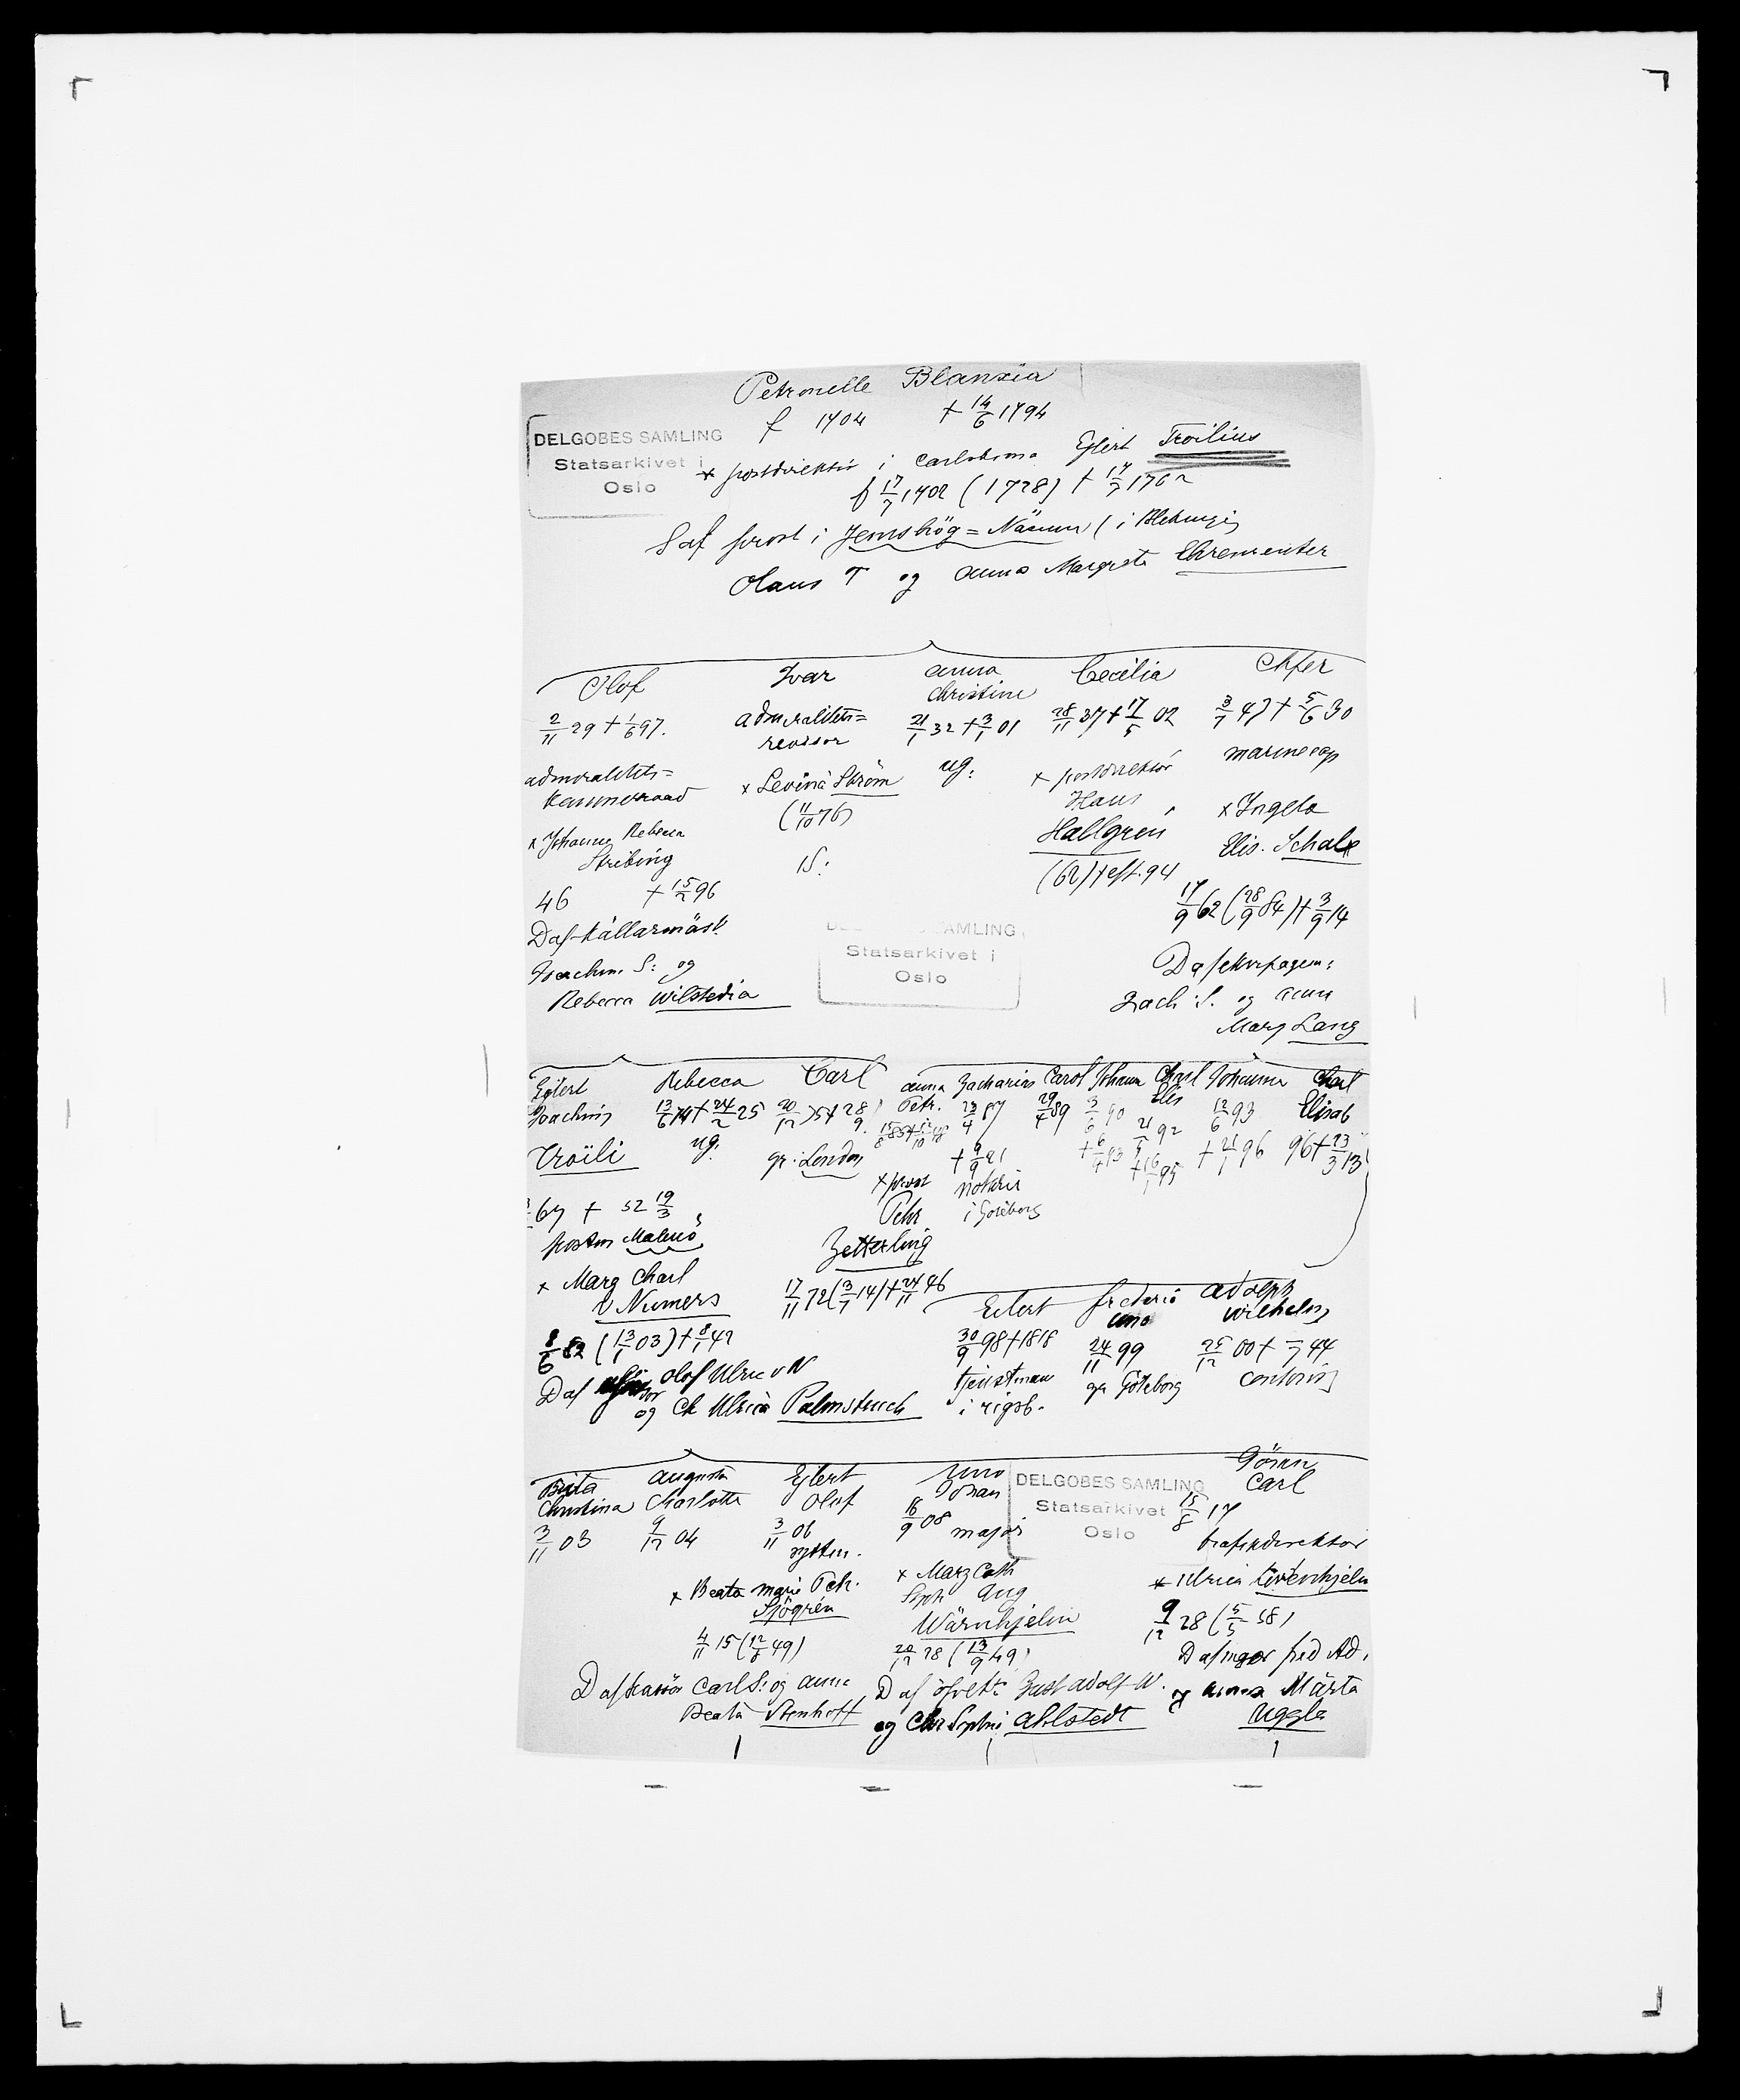 Petronelle Blanxia
f 1704 † 14/6 1794
DELGOBES SAMLING
Statsarkivet i
Oslo
x postdirektör i Carlskrona Eglert Troilius
f 17/7 1702 (1728) † 17/7 1762
S af prost i Jemshög = Näsum (i Blekinge)
Olaus T og Anna Margreta Ehrenreuter
Olof
2/11 29 † 1/6 97.
admiralitets=
kammeraad
x Johanna Rebecca
Stribing
46 † 15/2 96
D af källarmäst.
Joachim S: og
Rebecca Wilstedia
Ivar
admiralitets=
revisor
x Levina Ström
(11/10 76)
IS:
Anna
Christine
21/1 32 † 3/1 01
ug:
Cecilia
28/11 37 † 17/5 02
x postdirektör
Hans
Hallgren
(62) † eft. 94
3/7 47 † 5/6 30
marinecap
x Ingela
Elis. Schale
17/9 62 (28/9 84) † 3/9 14
Zach S. og Anna
Marg Lang
SAMLING
Statsarkivet i
Oslo
Eglert
Joachim
Troili
67 † 52 19/3
postm Malmö
x Marg Charl
v Numers
8/6 82 (13/1 03) † 8/1 42
D af Olof Ulric v N
og Ch Ulrica Palmstruch
Rebecca
13/6 74 † 24/2 25
ug.
Carl
20/12 75 † 28/9
gr: London
Anna
Petr.
x prost
Pehr
Zetterling
17/11 72 (3/7 14) † 24/11 46
Zacharias
23/4 87
† 9/9 21
notarie
i Göteborg
Carol
29/4 89
Johann
3/6 90
† 6/4 93
Charl
Elis
21/5 92
† 16/1 95
Johanna
12/6 93
† 21/1 96
Charl
Elisab
96 † 23/3 13
Eilert
30/9 98 † 1818
tjenstman
i rigsb.
Frederic
Uno
24/11 99
gr Göteborg
Adolph
Wilhelm
25/12 00 † 7 44
Brita
Christina
3/11 03
Augusta
Charlotte
9/12 04
Eglert
Olof
3/11 06
x Beata Marie Petr.
Sjögrén
4/11 15 (12/6 49)
D af Carl S: og Anna
Beata Stenhoff
Uno
Johan
16/9 08 major
x Marg Cath
Soph Aug
Wärnhjelm
20/12 28 (13/9 49)
D af Gust Adolf W.
og Chr Sophie Ahlstedt
DELGOBES SAMLING
Statsarkivet
Oslo
Göran
Carl
15/8 17
trafikdirektör
x Ulrica Löwenhjelm
9/12 28 (5/5 58)
D af major Fred Ad.
og Anna Märta
Uggla